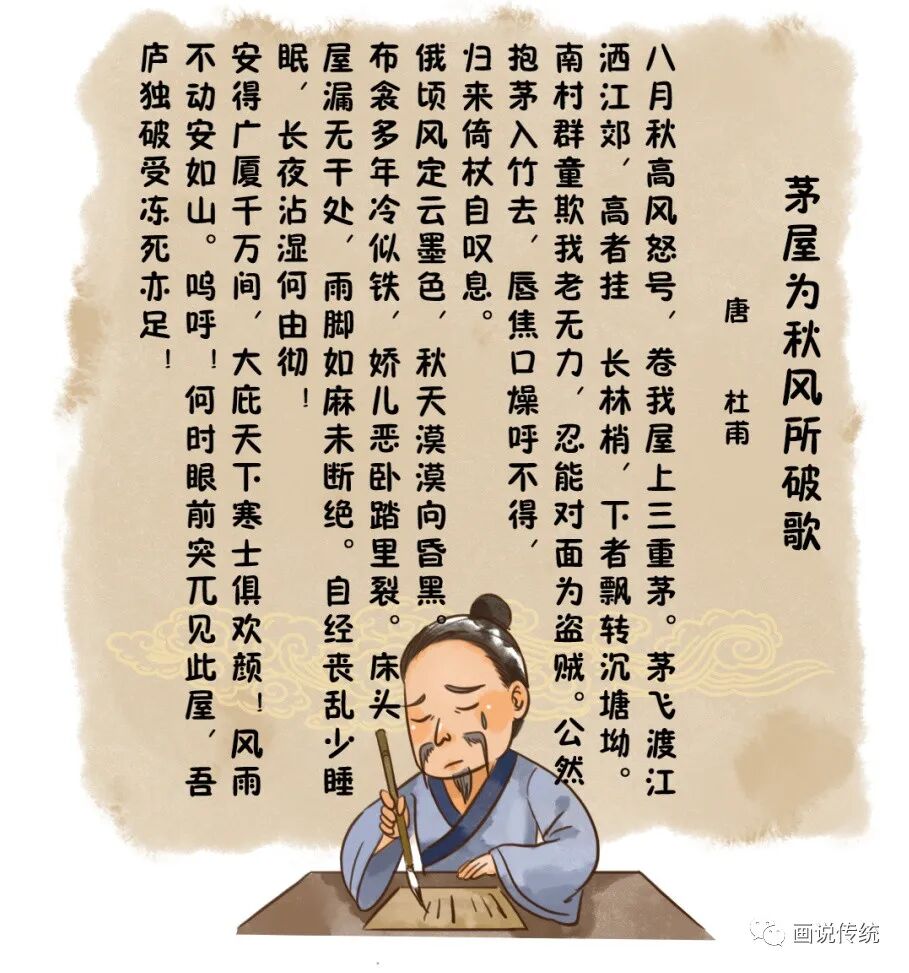 茅屋为秋风所破歌
唐 杜甫
八月秋高风怒号，卷我屋上三重茅。茅飞渡江
洒江郊，高者挂 长林梢，下者飘转沉塘坳。
南村群童欺我老无力，忍能对面为盗贼。公然
抱茅入竹去，唇焦口燥呼不得，
归来倚杖自叹息。
俄顷风定云墨色，秋天漠漠向昏黑。
布衾多年冷似铁，娇儿恶卧踏里裂。床头
屋漏无干处，雨脚如麻未断绝。自经丧乱少睡
眠，长夜沾湿何由彻！
安得广厦千万间，大庇天下寒士俱欢颜！风雨
不动安如山。呜呼！何时眼前突兀见此屋，吾
庐独破受冻死亦足！
画说传统